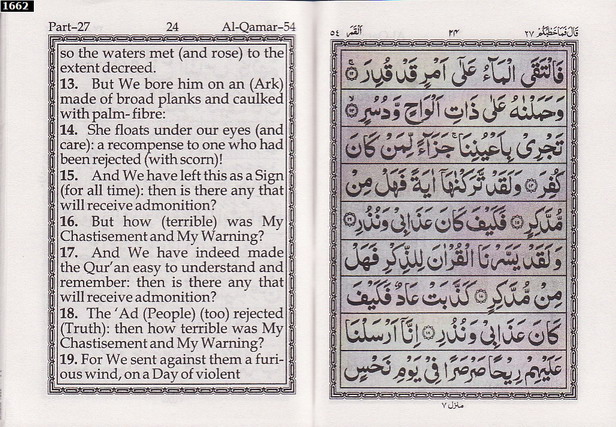 1662
Part–27 24 Al-Qamar–54
so the waters met (and rose) to the
extent decreed.
13. But We bore him on an (Ark)
made of broad planks and caulked
with palm-fibre:
14. She floats under our eyes (and
care): a recompense to one who had
been rejected (with scorn)!
15. And We have left this as a Sign
(for all time): then is there any that
will receive admonition?
16. But how (terrible) was My
Chastisement and My Warning?
17. And We have indeed made
the Qur'an easy to understand and
remember: then is there any that
will receive admonition?
18. The 'Ad (People) (too) rejected
(Truth): then how terrible was My
Chastisement and My Warning?
19. For We sent against them a furi-
ous wind, on a Day of violent
قَالَ فَمَا خَطْبُكُمْ ٢٧ ٢٤ اَلْقَمَر ٥٤
فَالْتَقَى الْمَآءُ عَلٰٓى اَمْرٍ قَدْ قُدِرَ ۝١٢
وَحَمَلْنٰهُ عَلٰى ذَاتِ اَلْوَاحٍ وَّدُسُرٍ ۝١٣
تَجْرِىْ بِاَعْيُنِنَا ۚ جَزَآءً لِّمَنْ كَانَ
كُفِرَ ۝١٤ وَلَقَدْ تَّرَكْنٰهَآ اٰيَةً فَهَلْ مِنْ
مُّدَّكِرٍ ۝١٥ فَكَيْفَ كَانَ عَذَابِىْ وَنُذُرِ ۝١٦
وَلَقَدْ يَسَّرْنَا الْقُرْاٰنَ لِلذِّكْرِ فَهَلْ
مِنْ مُّدَّكِرٍ ۝١٧ كَذَّبَتْ عَادٌ فَكَيْفَ
كَانَ عَذَابِىْ وَنُذُرِ ۝١٨ اِنَّآ اَرْسَلْنَا
عَلَيْهِمْ رِيْحًا صَرْصَرًا فِىْ يَوْمِ نَحْسٍ
منزل ٧